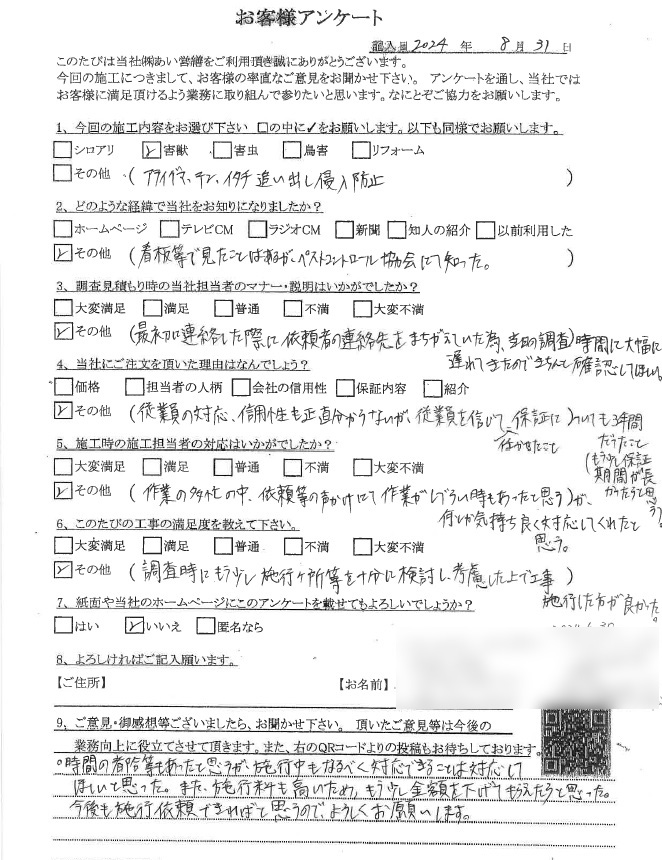 お客様アンケート
記入日 2024 年 8 月 31 日
このたびは当社㈱あい営繕をご利用頂き誠にありがとうございます。
今回の施工につきまして、お客様の率直なご意見をお聞かせ下さい。 アンケートを通し、当社では
お客様に満足頂けるよう業務に取り組んで参りたいと思います。なにとぞご協力をお願いします。
1、今回の施工内容をお選び下さい □の中に✓をお願いします。以下も同様でお願いします。
□シロアリ ☑害獣 □害虫 □鳥害 □リフォーム
□その他 (アライグマ、テン、イタチ追い出し侵入防止)
2、どのような経緯で当社をお知りになりましたか？
□ホームページ □テレビCM □ラジオCM □新聞 □知人の紹介 □以前利用した
☑その他 (看板等で見たことはあるが、ペストコントロール協会にて知った。)
3、調査見積もり時の当社担当者のマナー・説明はいかがでしたか？
□大変満足 □満足 □普通 □不満 □大変不満
☑その他 (最初に連絡した際に依頼者の連絡先をまちがえていた為、当日の調査)時間に大幅に
遅れてきたのできちんと確認してほしい。
4、当社にご注文を頂いた理由はなんでしょう？
□価格 □担当者の人柄 □会社の信用性 □保証内容 □紹介
☑その他 (従業員の対応、信用性も正直分からないが、従業員を信じて、保証に)ついても3年間
任かせたこと
だったこと
(もう少し保証
期間が長
かったらと思う)。
5、施工時の施工担当者の対応はいかがでしたか？
□大変満足 □満足 □普通 □不満 □大変不満
☑その他 (作業の多忙の中、依頼等の声かけにて作業がしづらい時もあったと思う)が、
何とか気持ち良く対応してくれたと
思う。
6、このたびの工事の満足度を教えて下さい。
□大変満足 □満足 □普通 □不満 □大変不満
☑その他 (調査時にもう少し施行ヶ所等を十分に検討し、考慮した上で工事)
施行した方が良かった。
7、紙面や当社のホームページにこのアンケートを載せてもよろしいでしょうか？
□はい ☑いいえ □匿名なら
8、よろしければご記入願います。
【ご住所】 【お名前】
9、ご意見・御感想等ございましたら、お聞かせ下さい。 頂いたご意見等は今後の
業務向上に役立てさせて頂きます。また、右のQRコードよりの投稿もお待ちしております。
。時間の都合等もあったと思うが、施行中もなるべく対応できることは対応して
ほしいと思った。また、施行料も高いため、もう少し金額を下げてもらえたらと思った。
今後も施行依頼できればと思うので、よろしくお願いします。